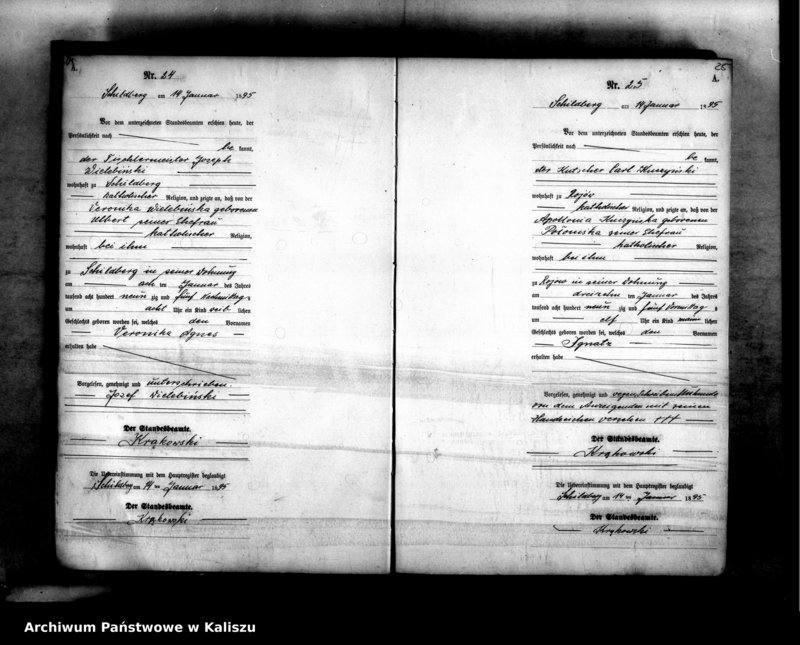 A.
Nr. 24
Schildberg am 14 Januar 1895
Vor dem unterzeichneten Standesbeamten erschien heute, der
Persönlichkeit nach
be kannt,
der Tischlermeister Joseph
Wielebiński
wohnhaft zu Schildberg
katholischer Religion, und zeigte an, daß von der
Veronika Wielebińska geborenen
Ulbert seiner Ehefrau
katholischer Religion,
wohnhaft bei ihm
zu Schildberg in seiner Wohnung
am acht ten Januar des Jahres
tausend acht hundert neun zig und fünf Nachmittag
um acht Uhr ein Kind weib lichen
Geschlechts geboren worden sei, welches den Vornamen
Veronika Agnes
erhalten habe
Vorgelesen, genehmigt und unterschrieben
Jozef Wielebiński
Der Standesbeamte.
Krąkowski
Die Uebereinstimmung mit dem Hauptregister beglaubigt
Schildberg am 14 ten Januar 1895
Der Standesbeamte.
Krąkowski
25
A.
Nr. 25
Schildberg am 14 Januar 1895
Vor dem unterzeichneten Standesbeamten erschien heute, der
Persönlichkeit nach
be kannt,
der Kutscher Carl Kuczyński
wohnhaft zu Rojów
katholischer Religion, und zeigte an, daß von der
Apollonia Kuczyńska geborenen
seiner Ehefrau
katholischer Religion,
wohnhaft bei ihm
zu Rojow in seiner Wohnung
am dreizehn ten Januar des Jahres
tausend acht hundert neun zig und fünf Vormittag s
um elf Uhr ein Kind männ lichen
Geschlechts geboren worden sei, welches den Vornamen
Ignatz
erhalten habe
Vorgelesen, genehmigt und wegen Schreibensunkunde
von dem Anzeigenden mit seinen
Handzeichen versehen +++
Der Standesbeamte.
Krąkowski
Die Uebereinstimmung mit dem Hauptregister beglaubigt
Schildberg am 14 ten Januar 1895
Der Standesbeamte.
Krąkowski
Archiwum Państwowe w Kaliszu